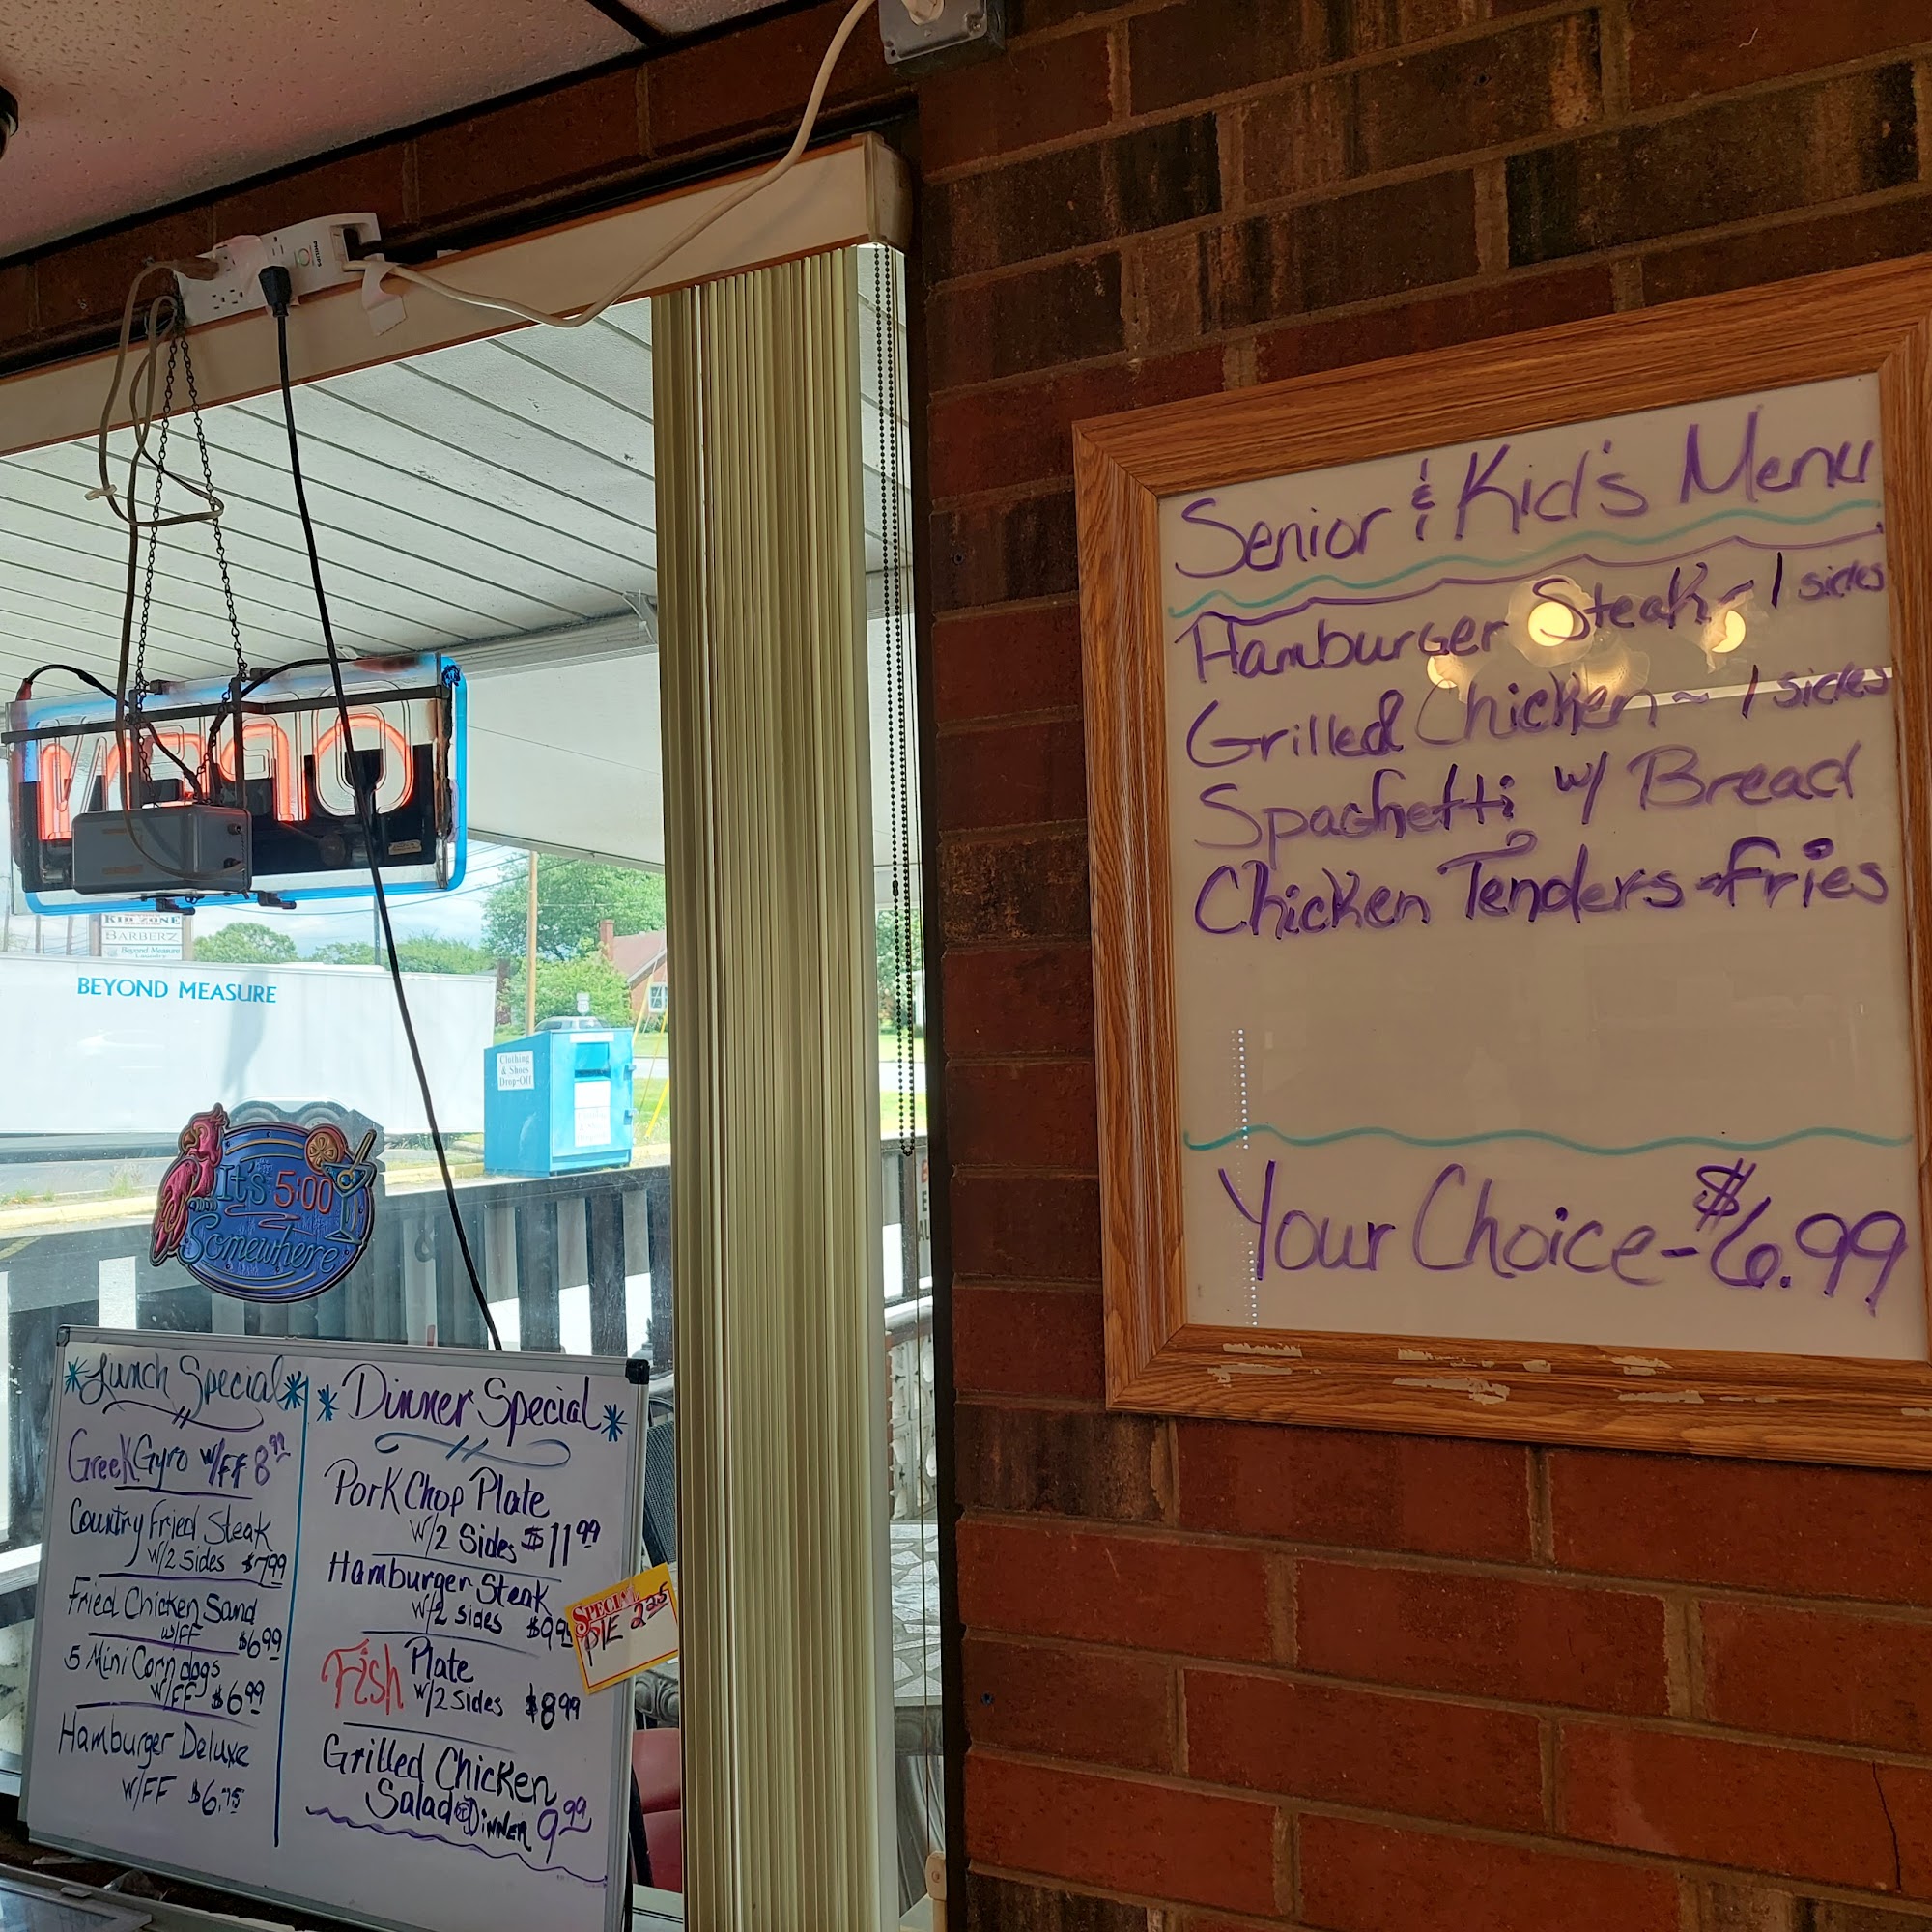 PHILIPS
OPEN
KID ZONE
BARBERZ
Beyond Measure
BEYOND MEASURE
Clothing
& Shoes
Drop-Off
It's 5:00
Somewhere
*Lunch Special*
Greek Gyro w/FF 8.99
Country Fried Steak
w/2 Sides $7.99
Fried Chicken Sand
w/FF $6.99
5 Mini Corn dogs
w/FF $6.99
Hamburger Deluxe
w/FF $6.75
* Dinner Special *
Pork Chop Plate
w/2 Sides $11.99
Hamburger Steak
w/2 sides $9.95
Fish Plate
w/2 sides $8.99
Grilled Chicken
Salad Dinner 9.99
SPECIAL
PIE 2.25
Senior & Kid's Menu
Hamburger Steak ~ 1 sides
Grilled Chicken ~ 1 sides
Spaghetti w/ Bread
Chicken Tenders - fries
Your Choice - $6.99